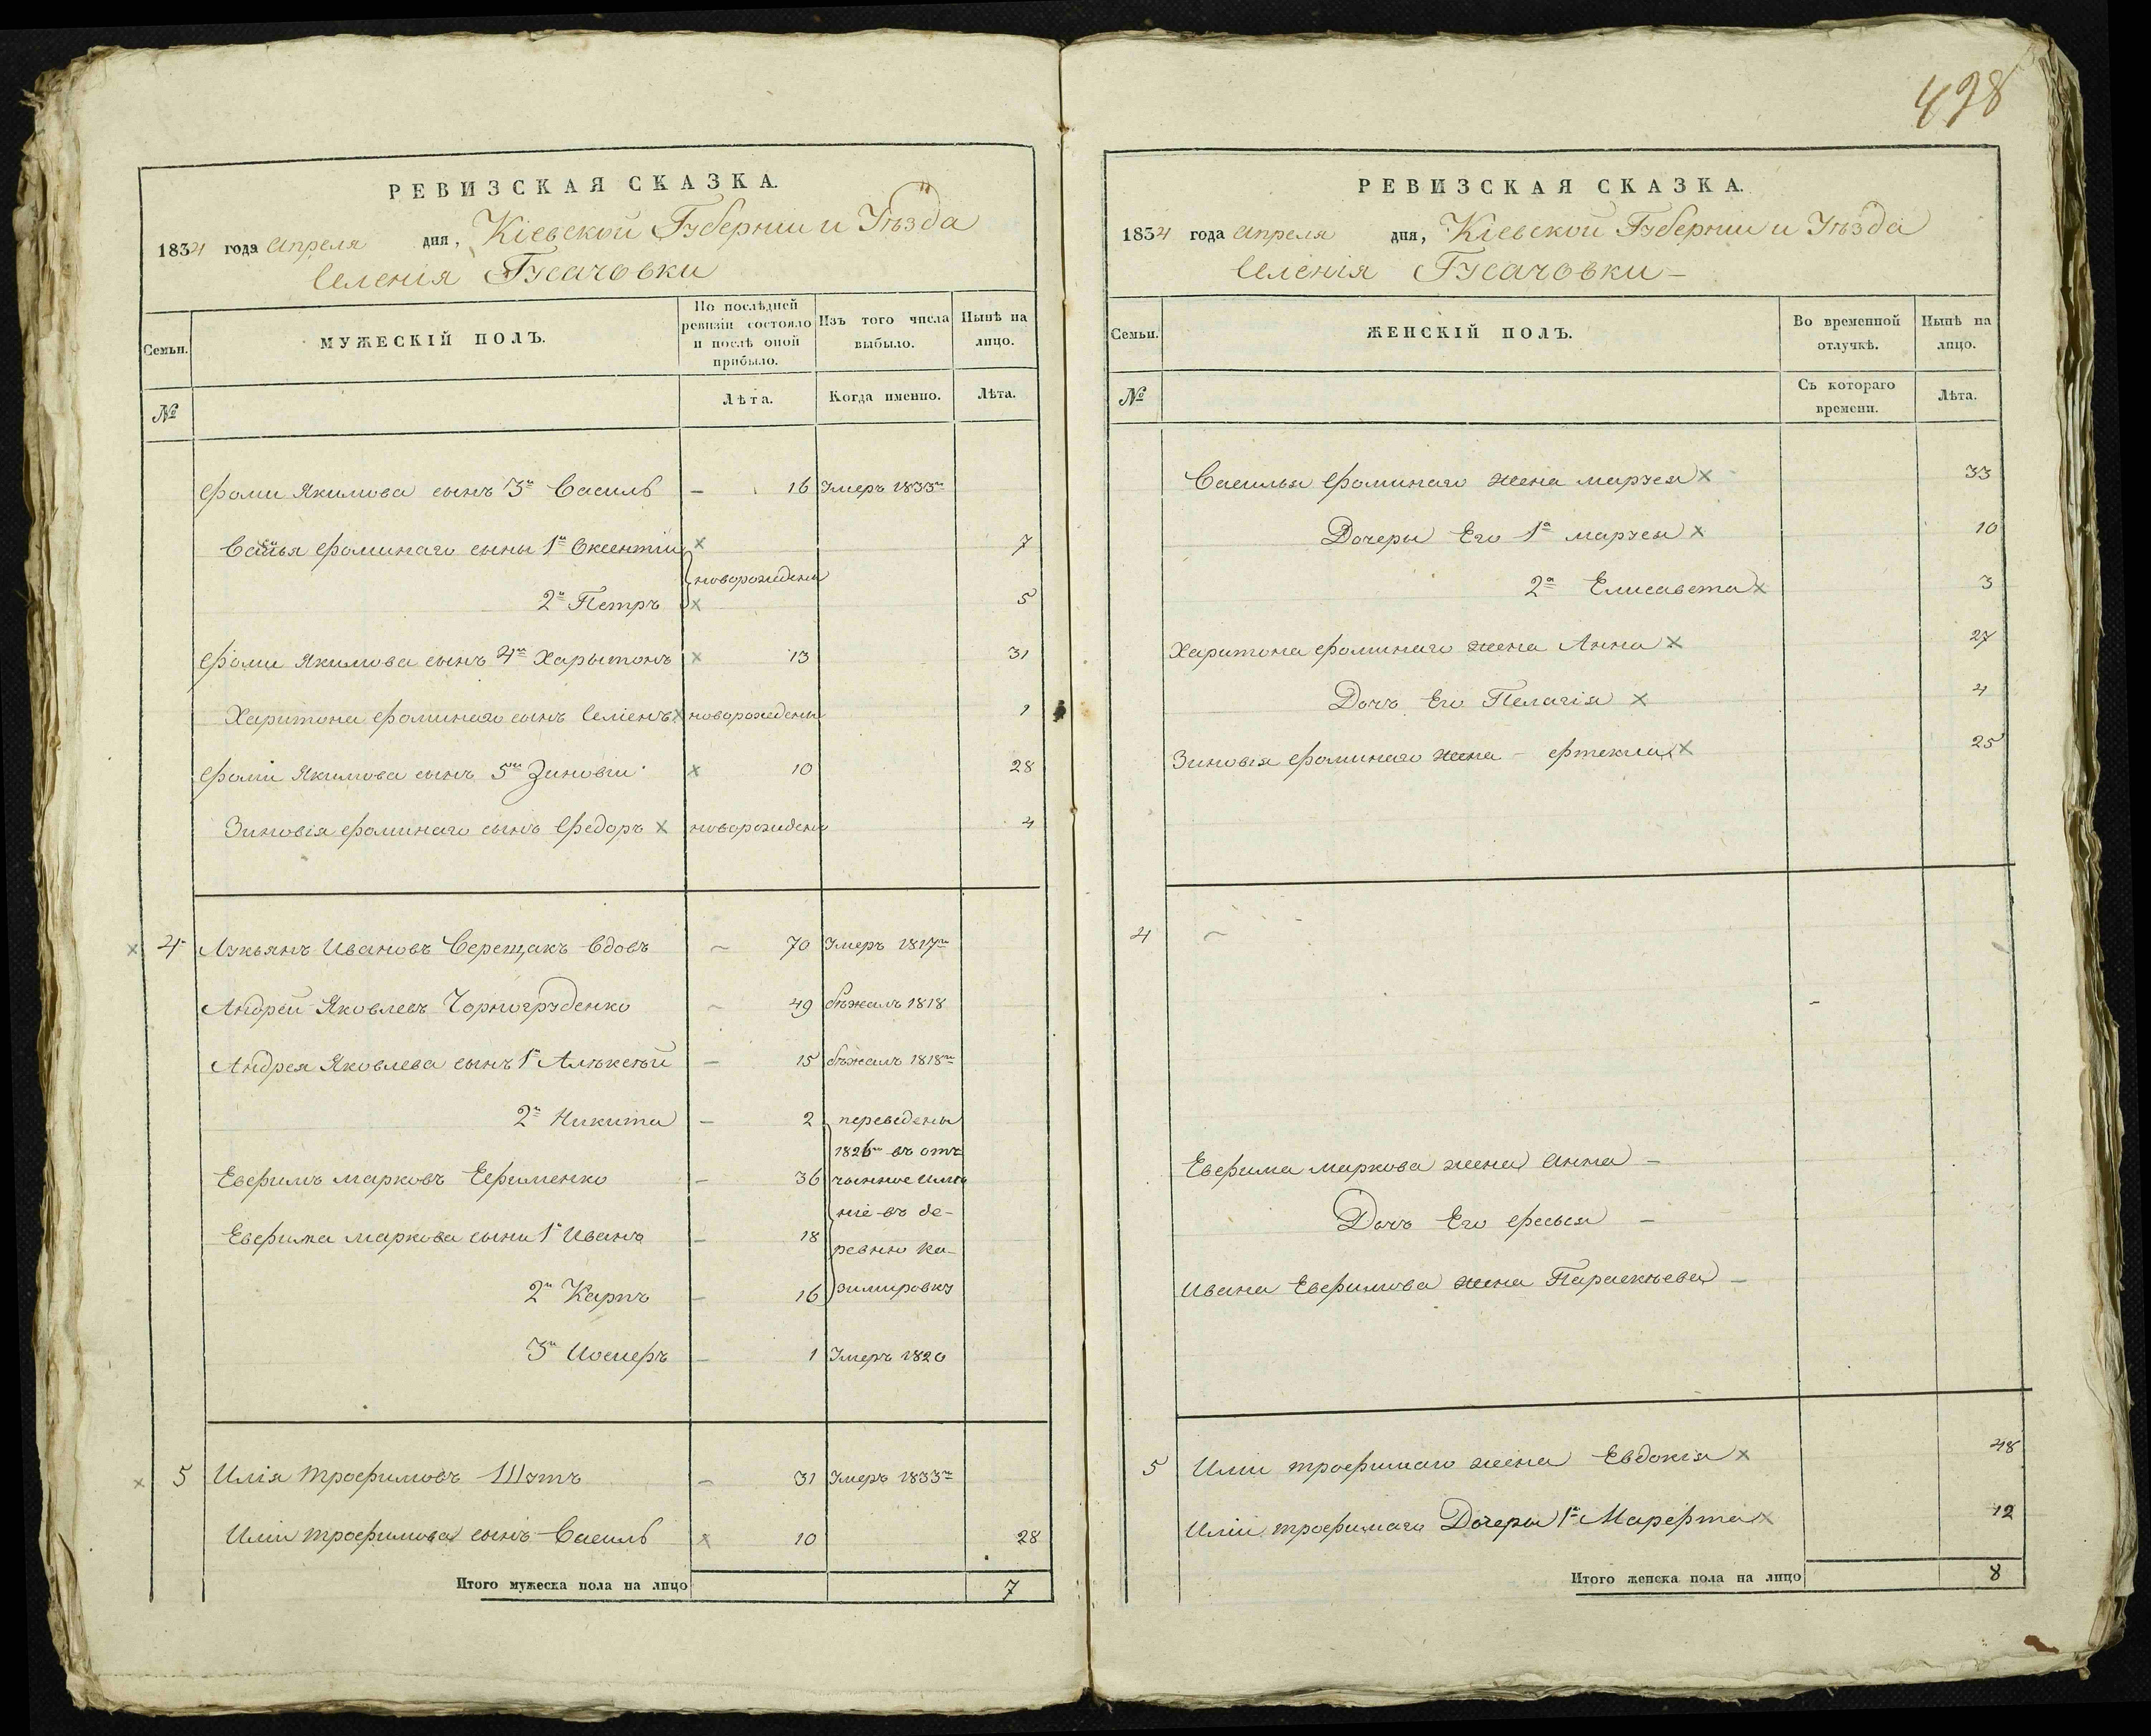 498
РЕВИЗСКАЯ СКАЗКА.
1834 года апреля дня, Кіевской Губерніи и Уѣзда
Селенія Гусачовки
Семьи. МУЖЕСКІЙ ПОЛЪ. По послѣдней ревизіи состояло и послѣ оной прибыло. Изъ того числа выбыло. Нынѣ на лицо.
№ Лѣта. Когда именно. Лѣта.
Фоми Якимова сынъ 3й Василь – 16 Умеръ 1833го
Василья Фоминаго сыны 1й Оксентій х 7
новорождены
2й Петръ х 5
Фоми Якимова сынъ 4й Харытонъ х 13 31
Харитона Фоминаго сынъ х новорожденъ 1
Фоми Якимова сынъ 5й Зиновій х 10 28
Зиновія Фоминаго сынъ Федоръ х новорожденъ 4
х 4 Лукьянъ Ивановъ Верещакъ вдовъ – 70 Умеръ 1817го
Андрей Яковлевъ Чорногруденко – 49 бѣжалъ 1818
Андрея Яковлева сынъ 1й Алѣксѣй – 15 бѣжалъ 1818го
2й Никита – 2 переведены
1826го въ отъ
Евфимъ Марковъ Ефименко – 36 чынное име
ніе въ де-
Евфима Маркова сыни 1й Иванъ – 18
ревню Ка-
2й Карпъ – 16 зимировку
3й Иосифъ – 1 Умеръ 1820
х 5 Илія Трофимовъ Шутъ – 31 Умеръ 1833го
Иліи Трофимова сынъ Василь х 10 28
Итого мужеска пола на лицо 7
РЕВИЗСКАЯ СКАЗКА.
1834 года апреля дня, Кіевской Губерніи и Уѣзда
Селенія Гусачовки –
Семьи. ЖЕНСКІЙ ПОЛЪ. Во временной отлучкѣ. Нынѣ на лицо.
№ Съ котораго времени. Лѣта.
Василья Фоминаго жена Марфа х 33
Дочеры Его 1я Марфа х 10
2я Елисавета х 3
Харитона Фоминаго жена Анна х 27
Дочь Его Пелагія х 4
Зиновія Фоминаго жена – Фтекла х 25
4 –
Евфима Маркова жена Анна –
Дочь Его –
Ивана Евфимова жена Параскѣева –
5 Иліи Трофимаго жена Евдокія х 48
Иліи Трофимаго Дочеры 1я Марфта х 12
Итого женска пола на лицо 8